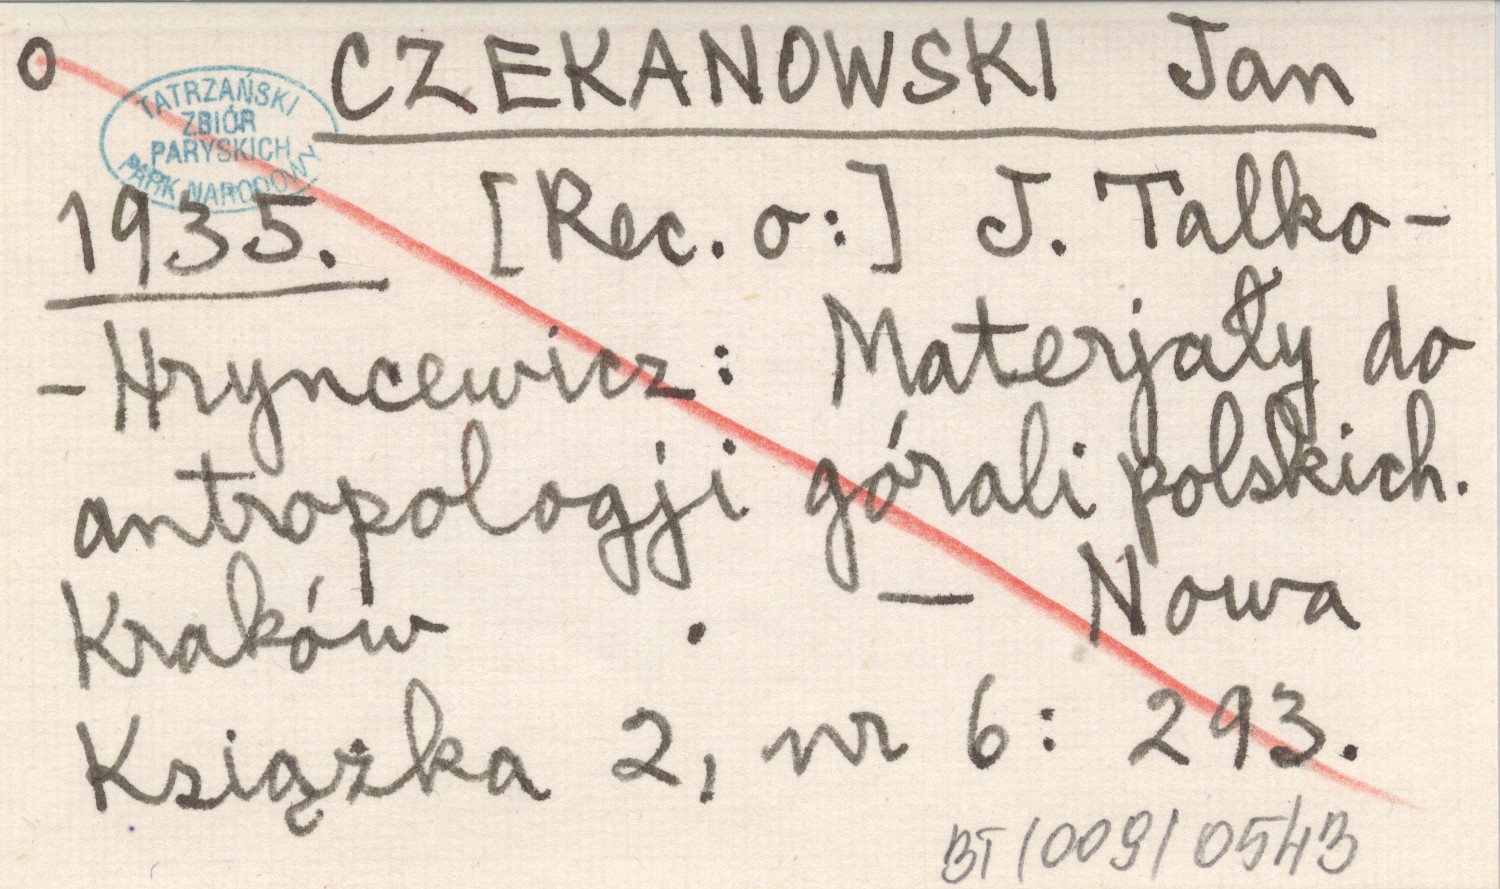 o CZEKANOWSKI Jan
TATRZAŃSKI
ZBIÓR
PARYSKICH
PARK NARODOWY
1935. [Rec. o:] J. Talko-
-Hryncewicz: Materjały do
antropologji górali polskich.
Kraków . — Nowa
Książka 2, nr 6: 293.
BT/009/0543